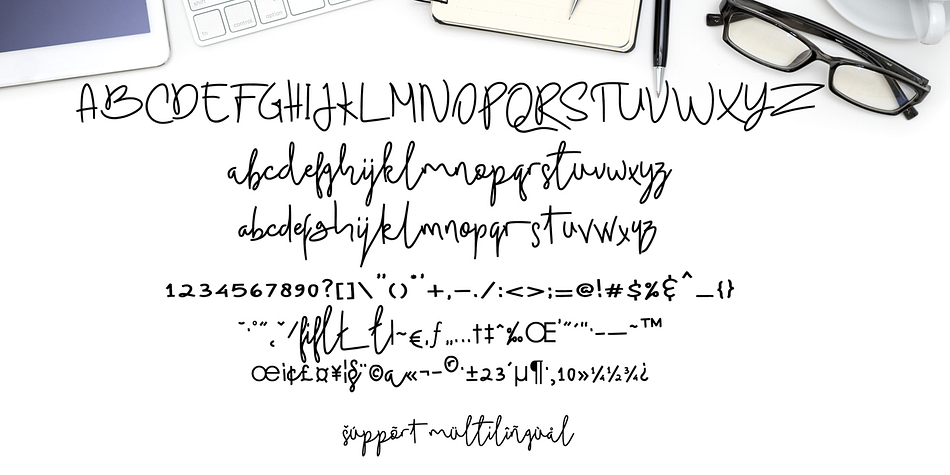 ABCDEFGHIJKLMNOPQRSTUVWXYZ
abcdefghijklmnopqrstuvwxyz
abcdefghijklmnopqrstuvwxyz
1234567890?[]\"()*'+,-./:<>;=@!#$%&^_{}
€ƒ„…†‡ˆ‰Œ'"´"·-—~™
œ¡¢£¤¥¦§¨©ª«¬-®·±23´µ¶·,10»¼½¾¿
šüppõrt mültilîñgùàl